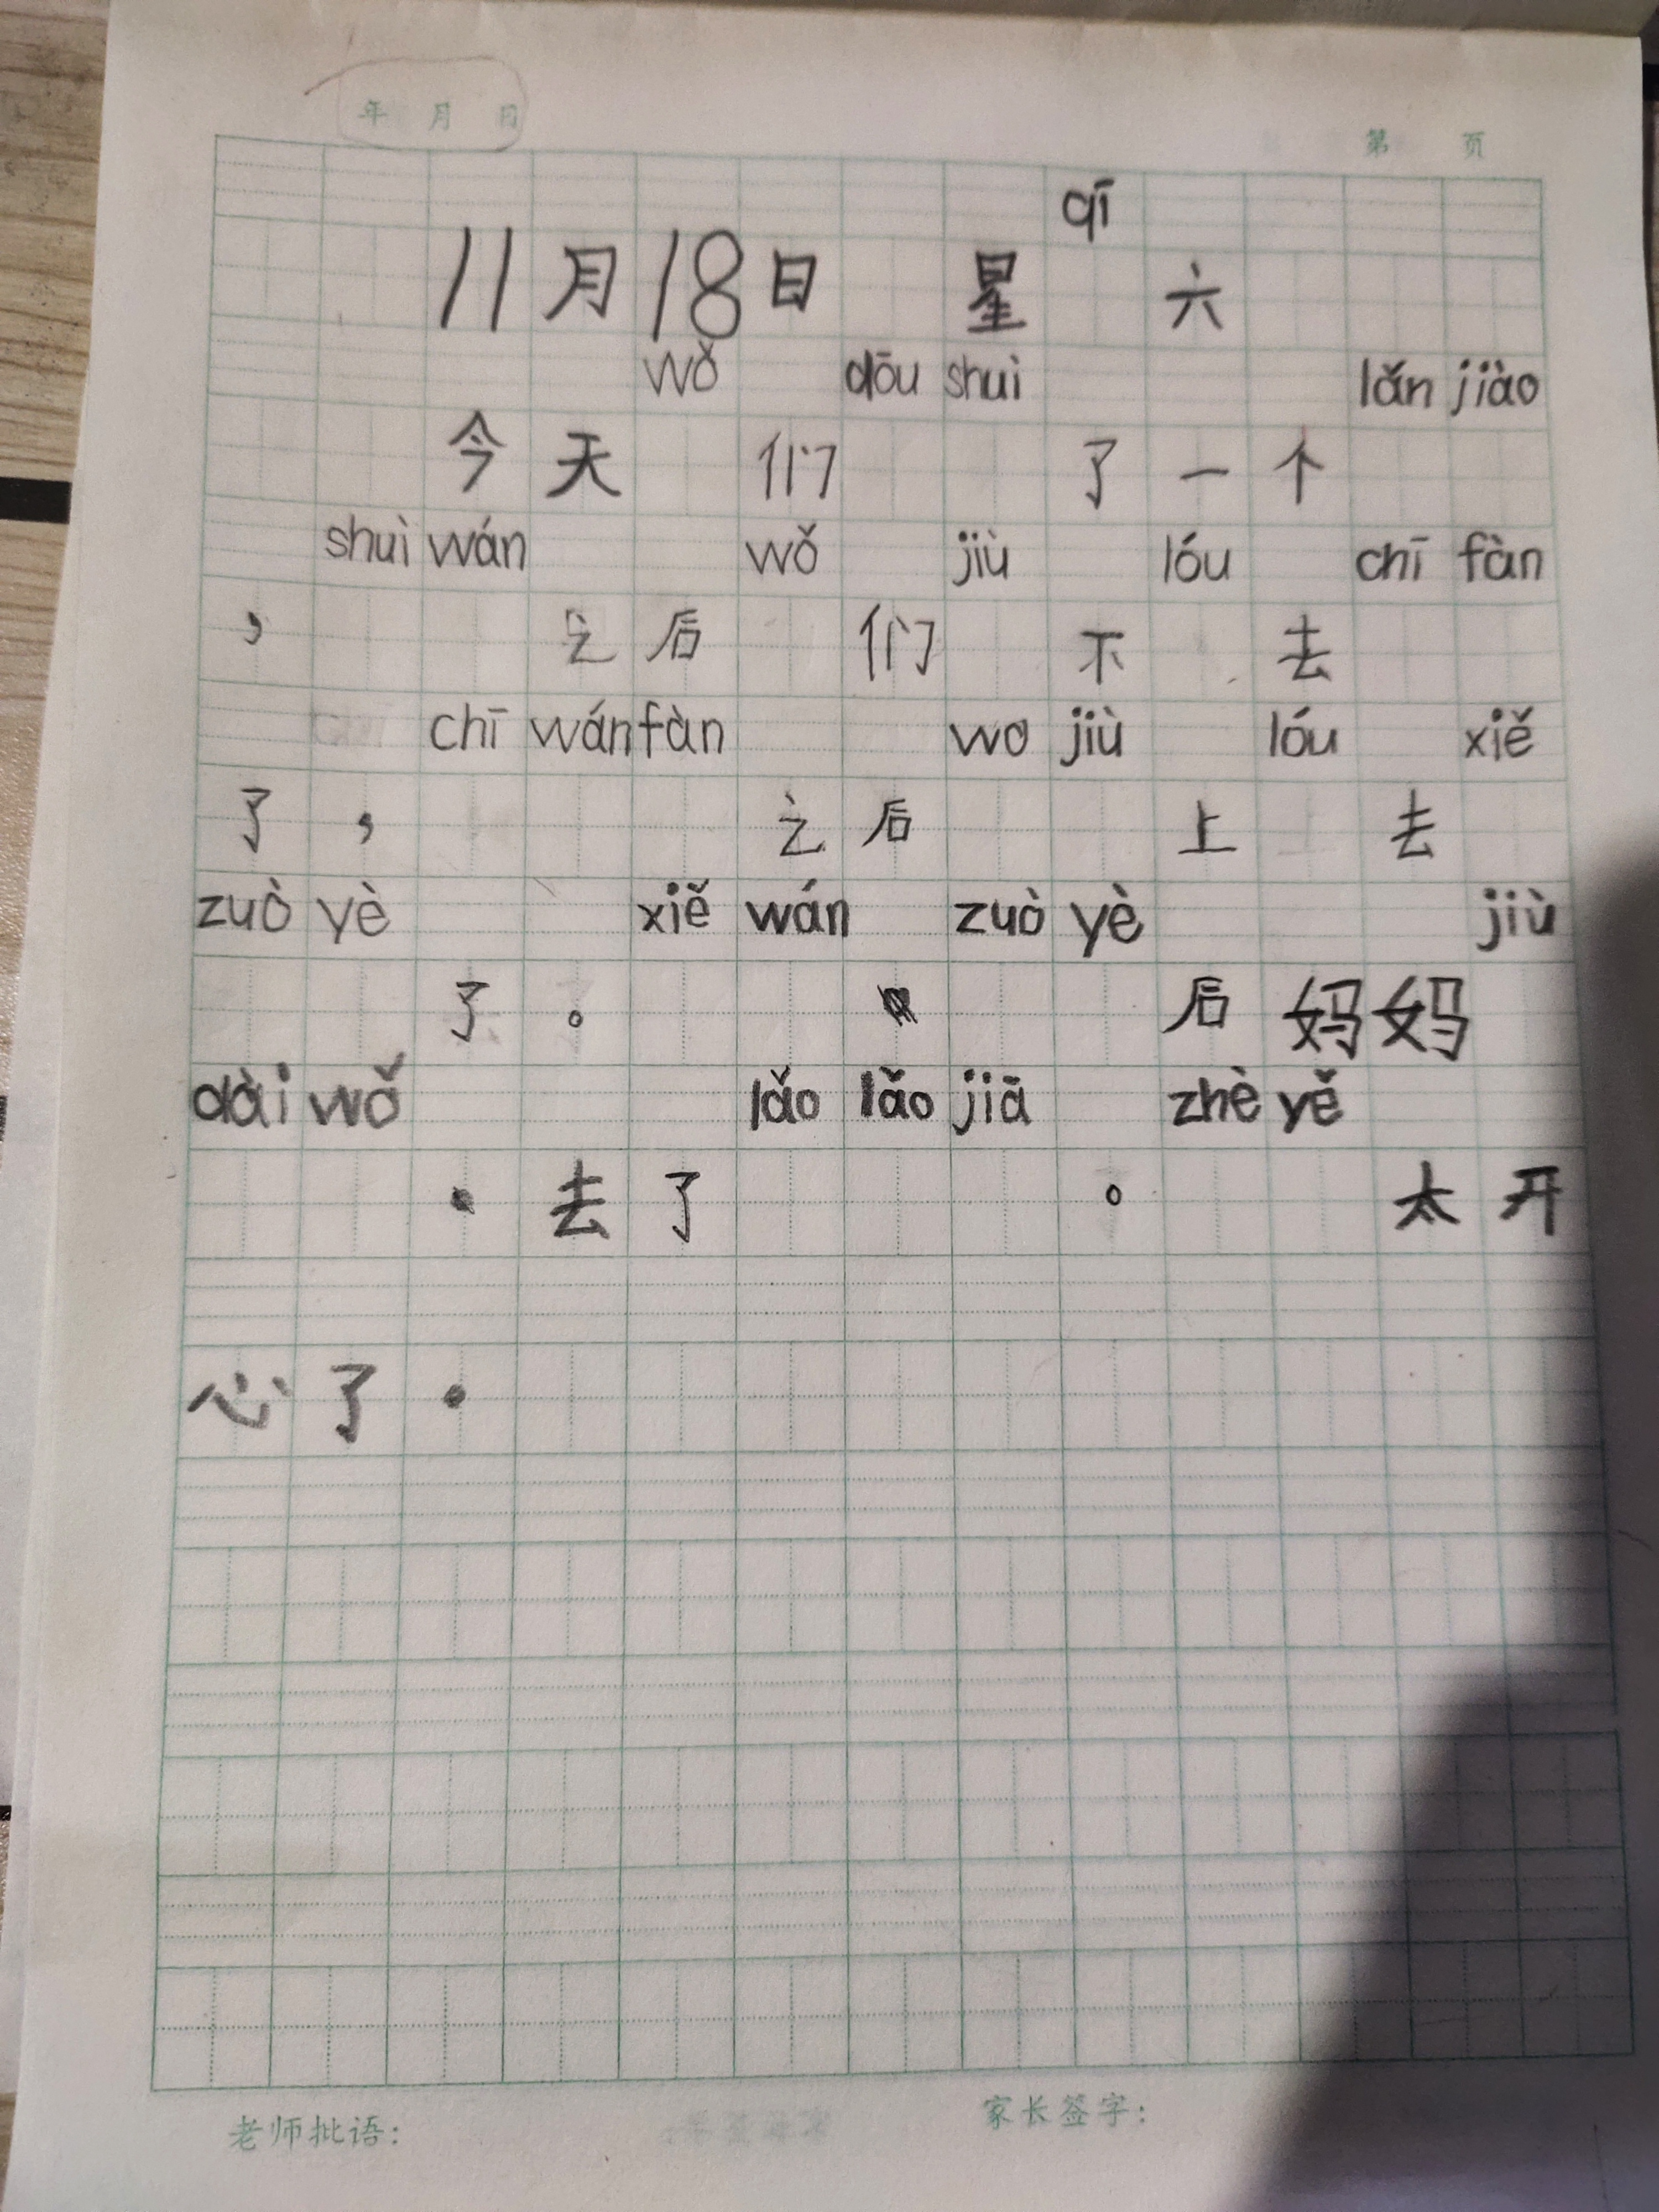 年 月 日
第 页
qī
11月18日 星 六
wǒ dōu shuì lǎn jiào
今天 们 了一个
shuì wán wǒ jiù lóu chī fàn
， 之后 们 下 去
chī wán fàn wo jiù lóu xiě
了， 之后 上 去
zuò yè xiě wán zuò yè jiù
了。 后妈妈
dài wǒ lǎo lǎo jiā zhè yě
去了 。 太开
心了.
老师批语：
家长签字：